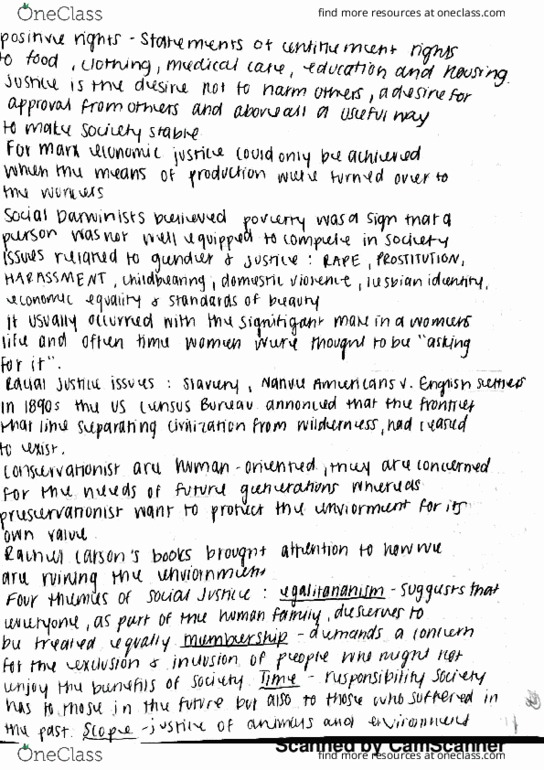 OneClass
find more resources at oneclass.com
positive rights - Statements of entitlement rights
to food, clothing, medical care, education and housing.
Justice is the desire not to harm others, a desire for
approval from others and above all a useful way
to make society stable
For marx economic justice could only be achieved
when the means of production were turned over to
the workers
Social Darwinists believed poverty was a sign that a
person was not well equipped to compete in society
Issues related to gender & justice : RAPE, PROSTITUTION,
HARASSMENT, childbearing, domestic violence, lesbian identity,
economic equality & standards of beauty
It usually occurred with the signifigant male in a womens
life and often time women were thought to be "asking
for it".
Racial Justice issues : Slavery, Native Americans v. English settlers
In 1890s the US Census Bureau annonced that the frontier
that line separating civilization from wilderness, had ceased
to exist.
Conservationist are human-oriented, they are concerned
for the needs of future generations whereas
preservationist want to protect the enviorment for its
own value
Rachel Carson's books brought attention to how we
are ruining the enviorment
Four themes of Social Justice : egalitarianism - suggests that
everyone, as part of the human family, deserves to
be treated equally membership - demands a concern
for the exclusion & inclusion of people who might not
enjoy the benefits of society Time - responsibility society
has to those in the future but also to those who suffered in
the past. Scope - justice of animals and environment
Scanned by CamScanner
OneClass
find more resources at oneclass.com